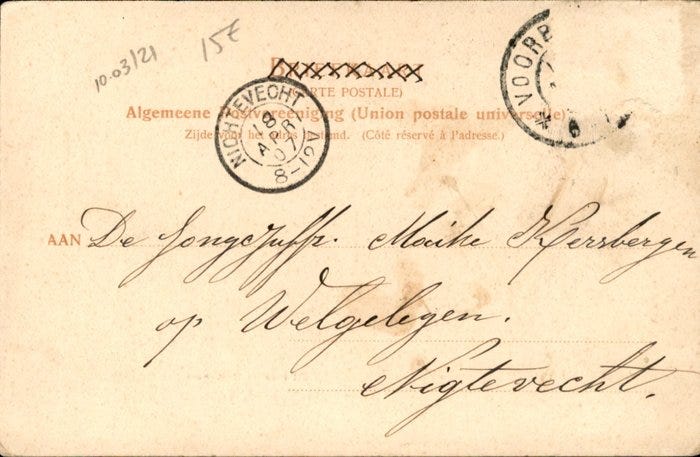 10.03/21
15€
(CARTE POSTALE)
Algemeene Postvereeniging (Union postale universelle)
Zijde voor het adres bestemd. (Côté réservé à l'adresse.)
NIGHTEVECHT
18
APR
07
8-12V
VOORB
AAN De Jongejuffr. Maike Kersbergen
op Welgelegen.
Nigtevecht.